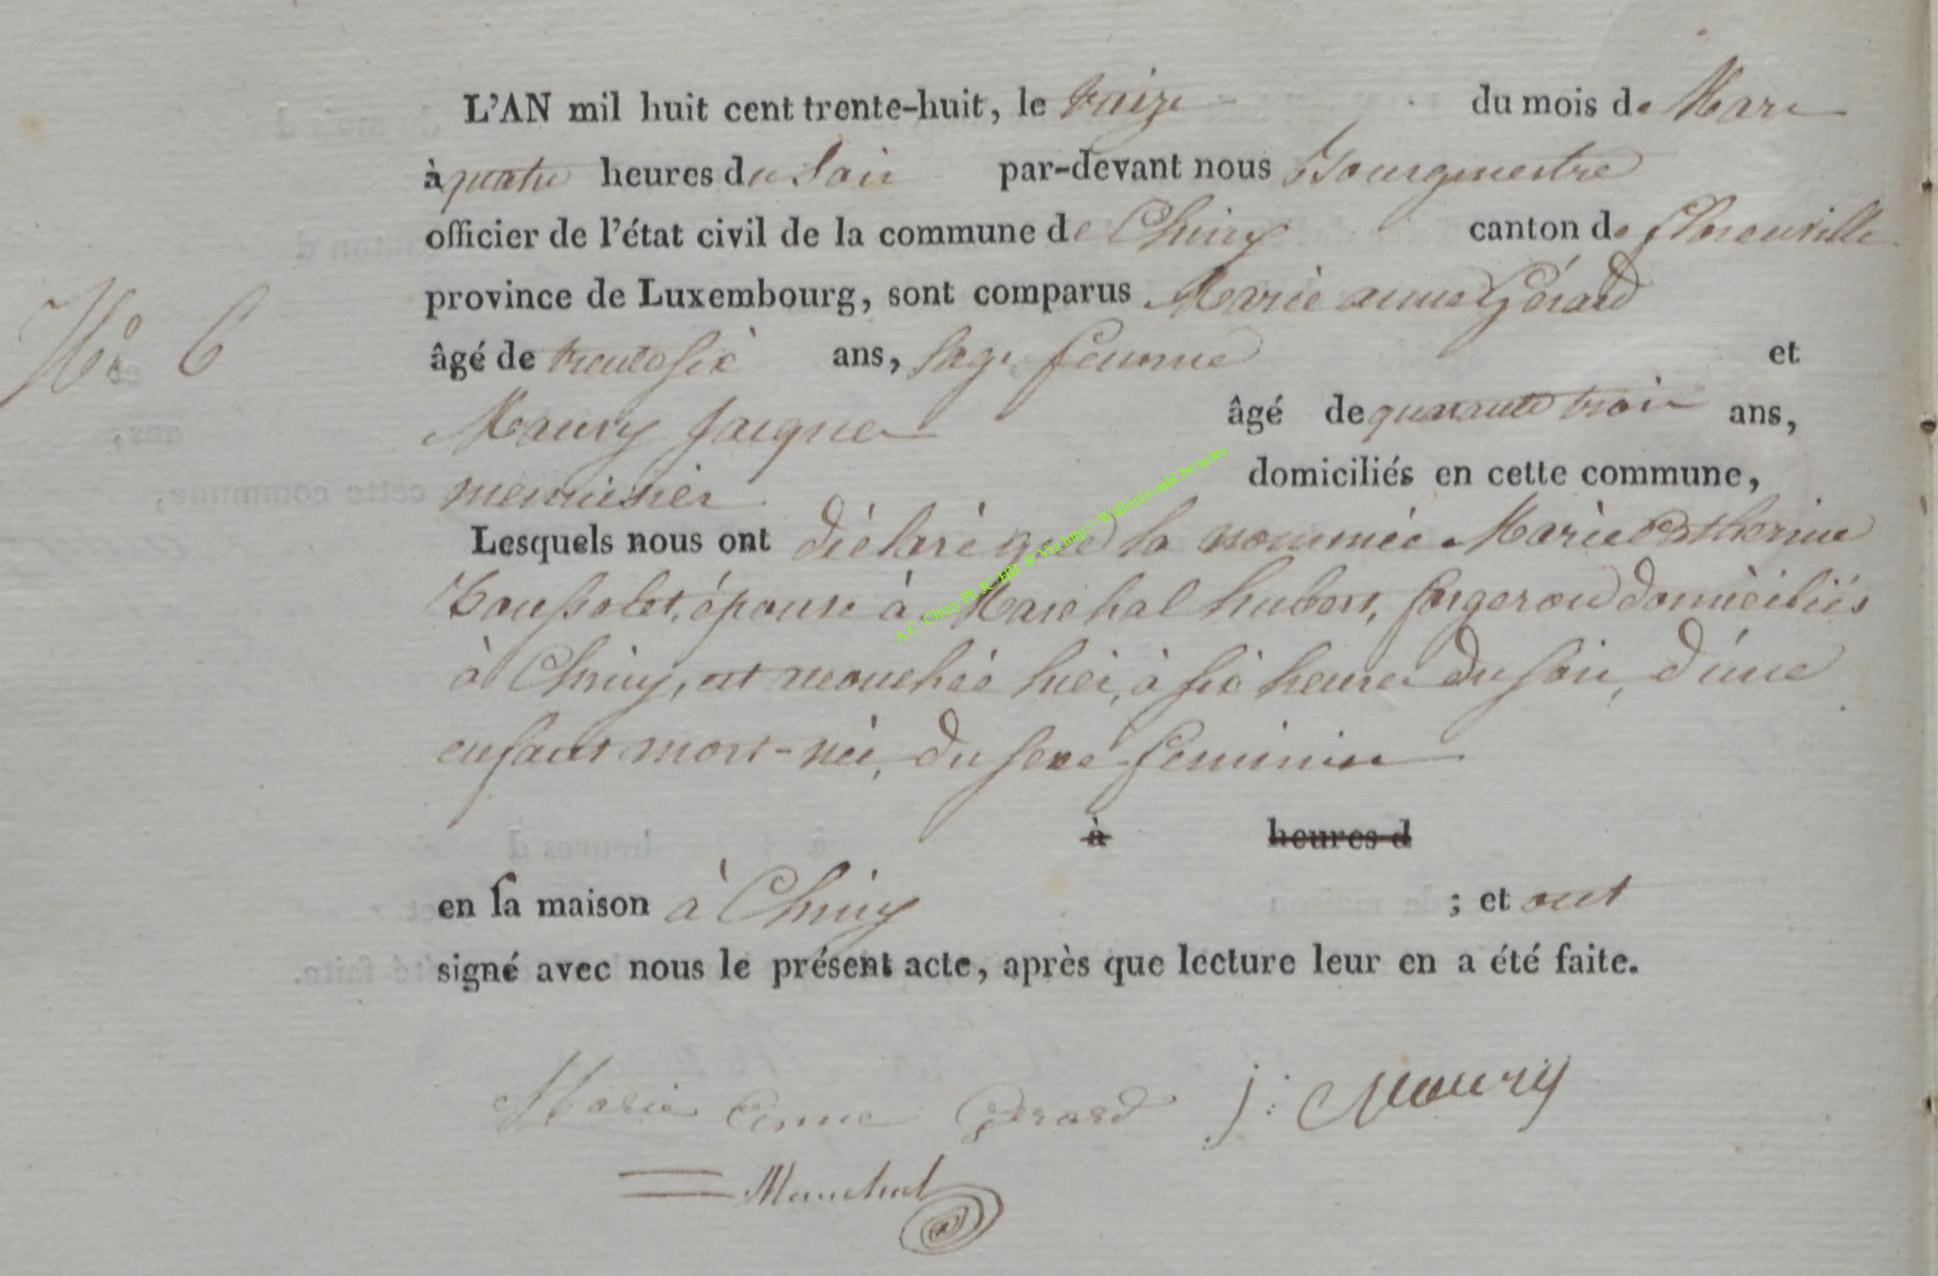 L'AN mil huit cent trente-huit, le treize du mois de Mars
à quatre heures du Soir par-devant nous Bourgmestre
officier de l'état civil de la commune de Chiny canton de florenville
province de Luxembourg, sont comparus Marie anne Gérard
N° 6
âgé de trente six ans, sage femme et
Maury Jacques âgé de quarante trois ans,
menuisier domiciliés en cette commune,
Lesquels nous ont déclaré que la nommée Marie Catherine
épouse à Marchal hubert, forgeron domiciliés
à Chiny, est accouchée hier, à six heures du soir, d'une
enfant mort-née, du sexe feminin
à heures d
en sa maison à Chiny ; et ont
signé avec nous le présent acte, après que lecture leur en a été faite.
Marie Anne Gerard J: Maury
Marchal
A.C. Chiny Ph JC/HB @ Via http:// Wallonia-asbl.be/actes